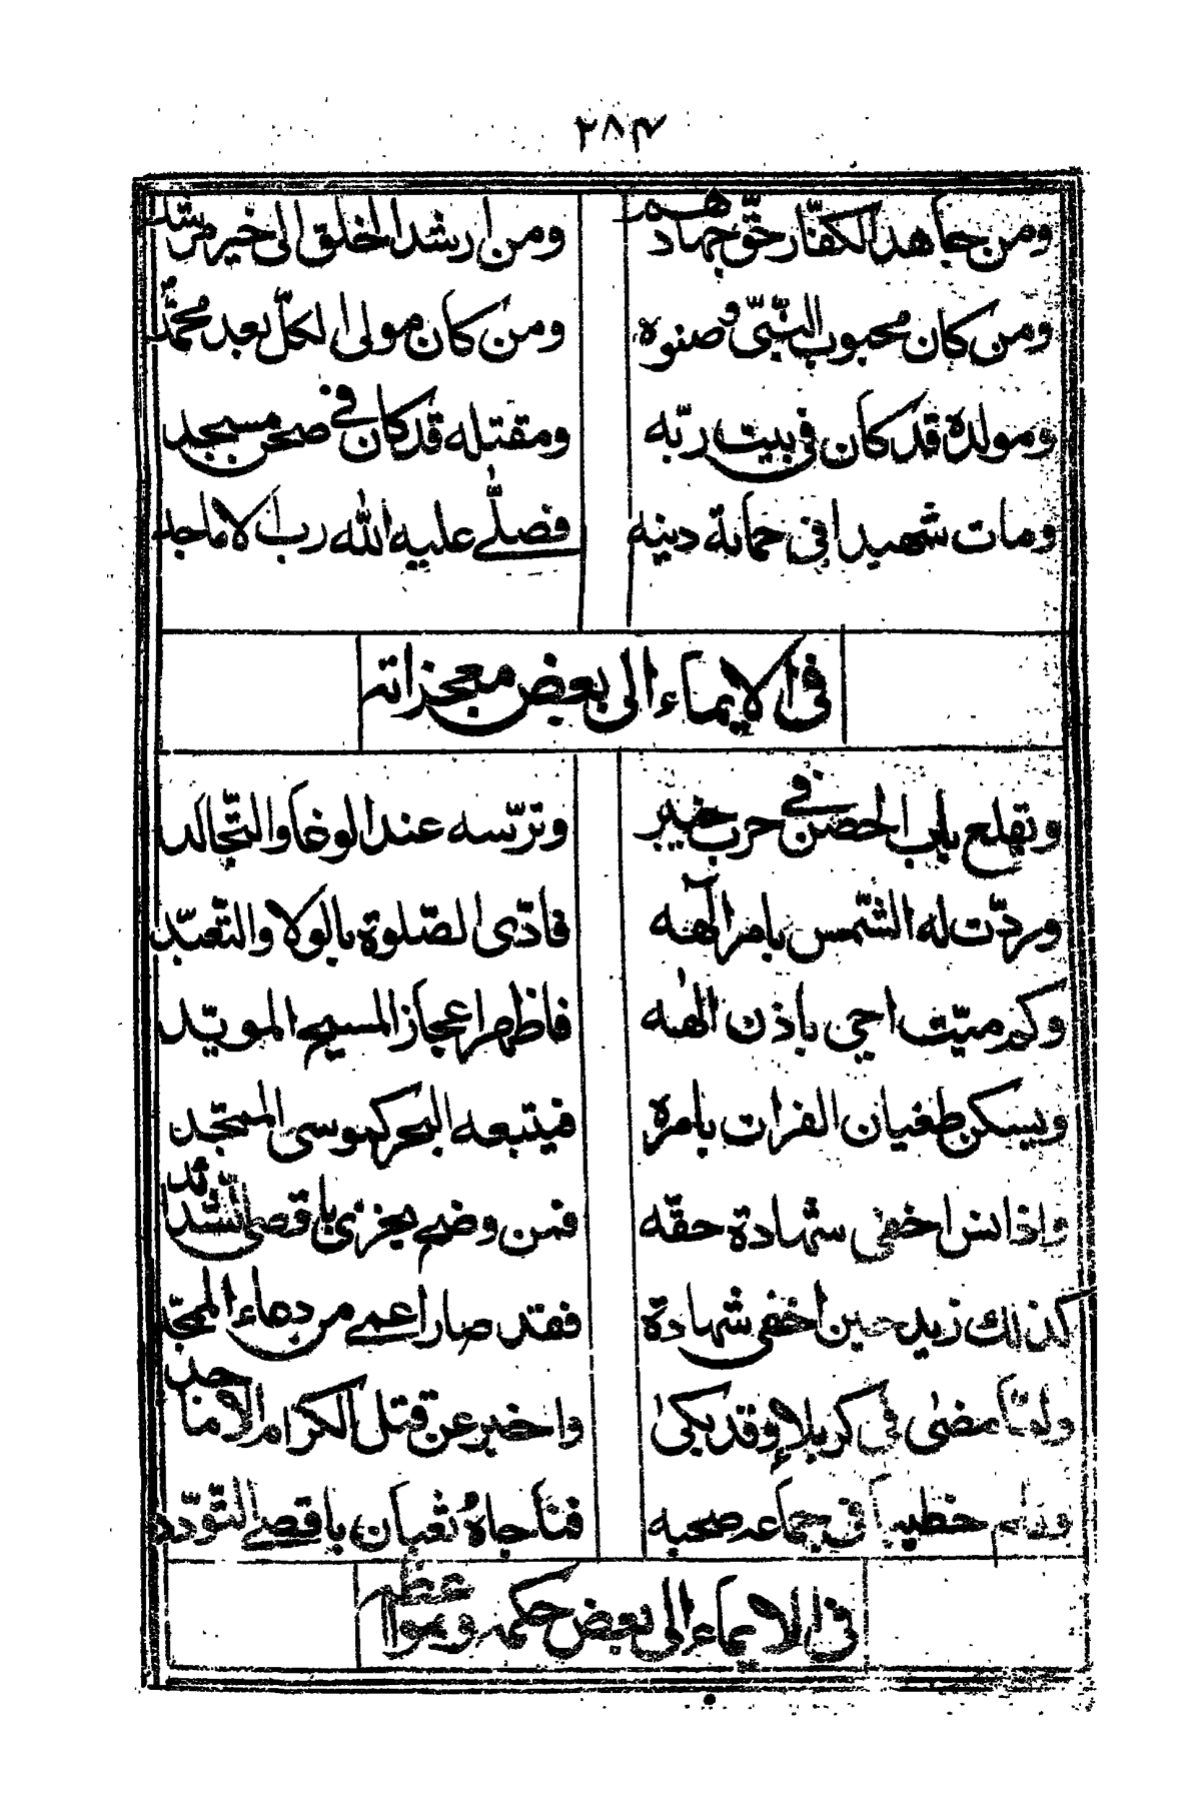 ٢٨٤
ومن جاهد الكفّار حقّ جهادهم ومن ارشد الخلق الى خير مرشد
ومن كان محبوب النّبىّ وصنوه ومن كان مولى الكلّ بعد محمّد
ومولده قد كان فى بيت ربّه ومقتله قد كان في صحن مسجد
ومات شهيدا فى حماية دينه فصلّے عليه الله رب الاماجد
فى الايماء الى بعض معجزاته
وتقلع باب الحصن في حرب خيبر وترّسه عند الوغا والتّجالد
وردّت له الشّمس بامر آلهه فادّى الصّلوة بالولا والتّعبّد
وكم ميّت احيى باذن الٰهه فاظهر اعجاز المسيح المويّد
ويسكن طغيان الفرات بامره فيتبعه البحر كموسى الممجّد
واذا انس اخفى شهادة حقه فمن وضح يجزى باقصى الشّدائد
كذلك زيد حين اخفى شهادة فقد صار اعمے من دعاء الممجّد
ولمّا مضىٰ فى كربلا وقد بكىٰ واخبر عن قتل الكرام الاماجد
وقام خطيبا فى جماعة صحبه فناجاهُ ثعبان باقصے التّودّد
فى الايماء الى بعض حكمه ومواعظه